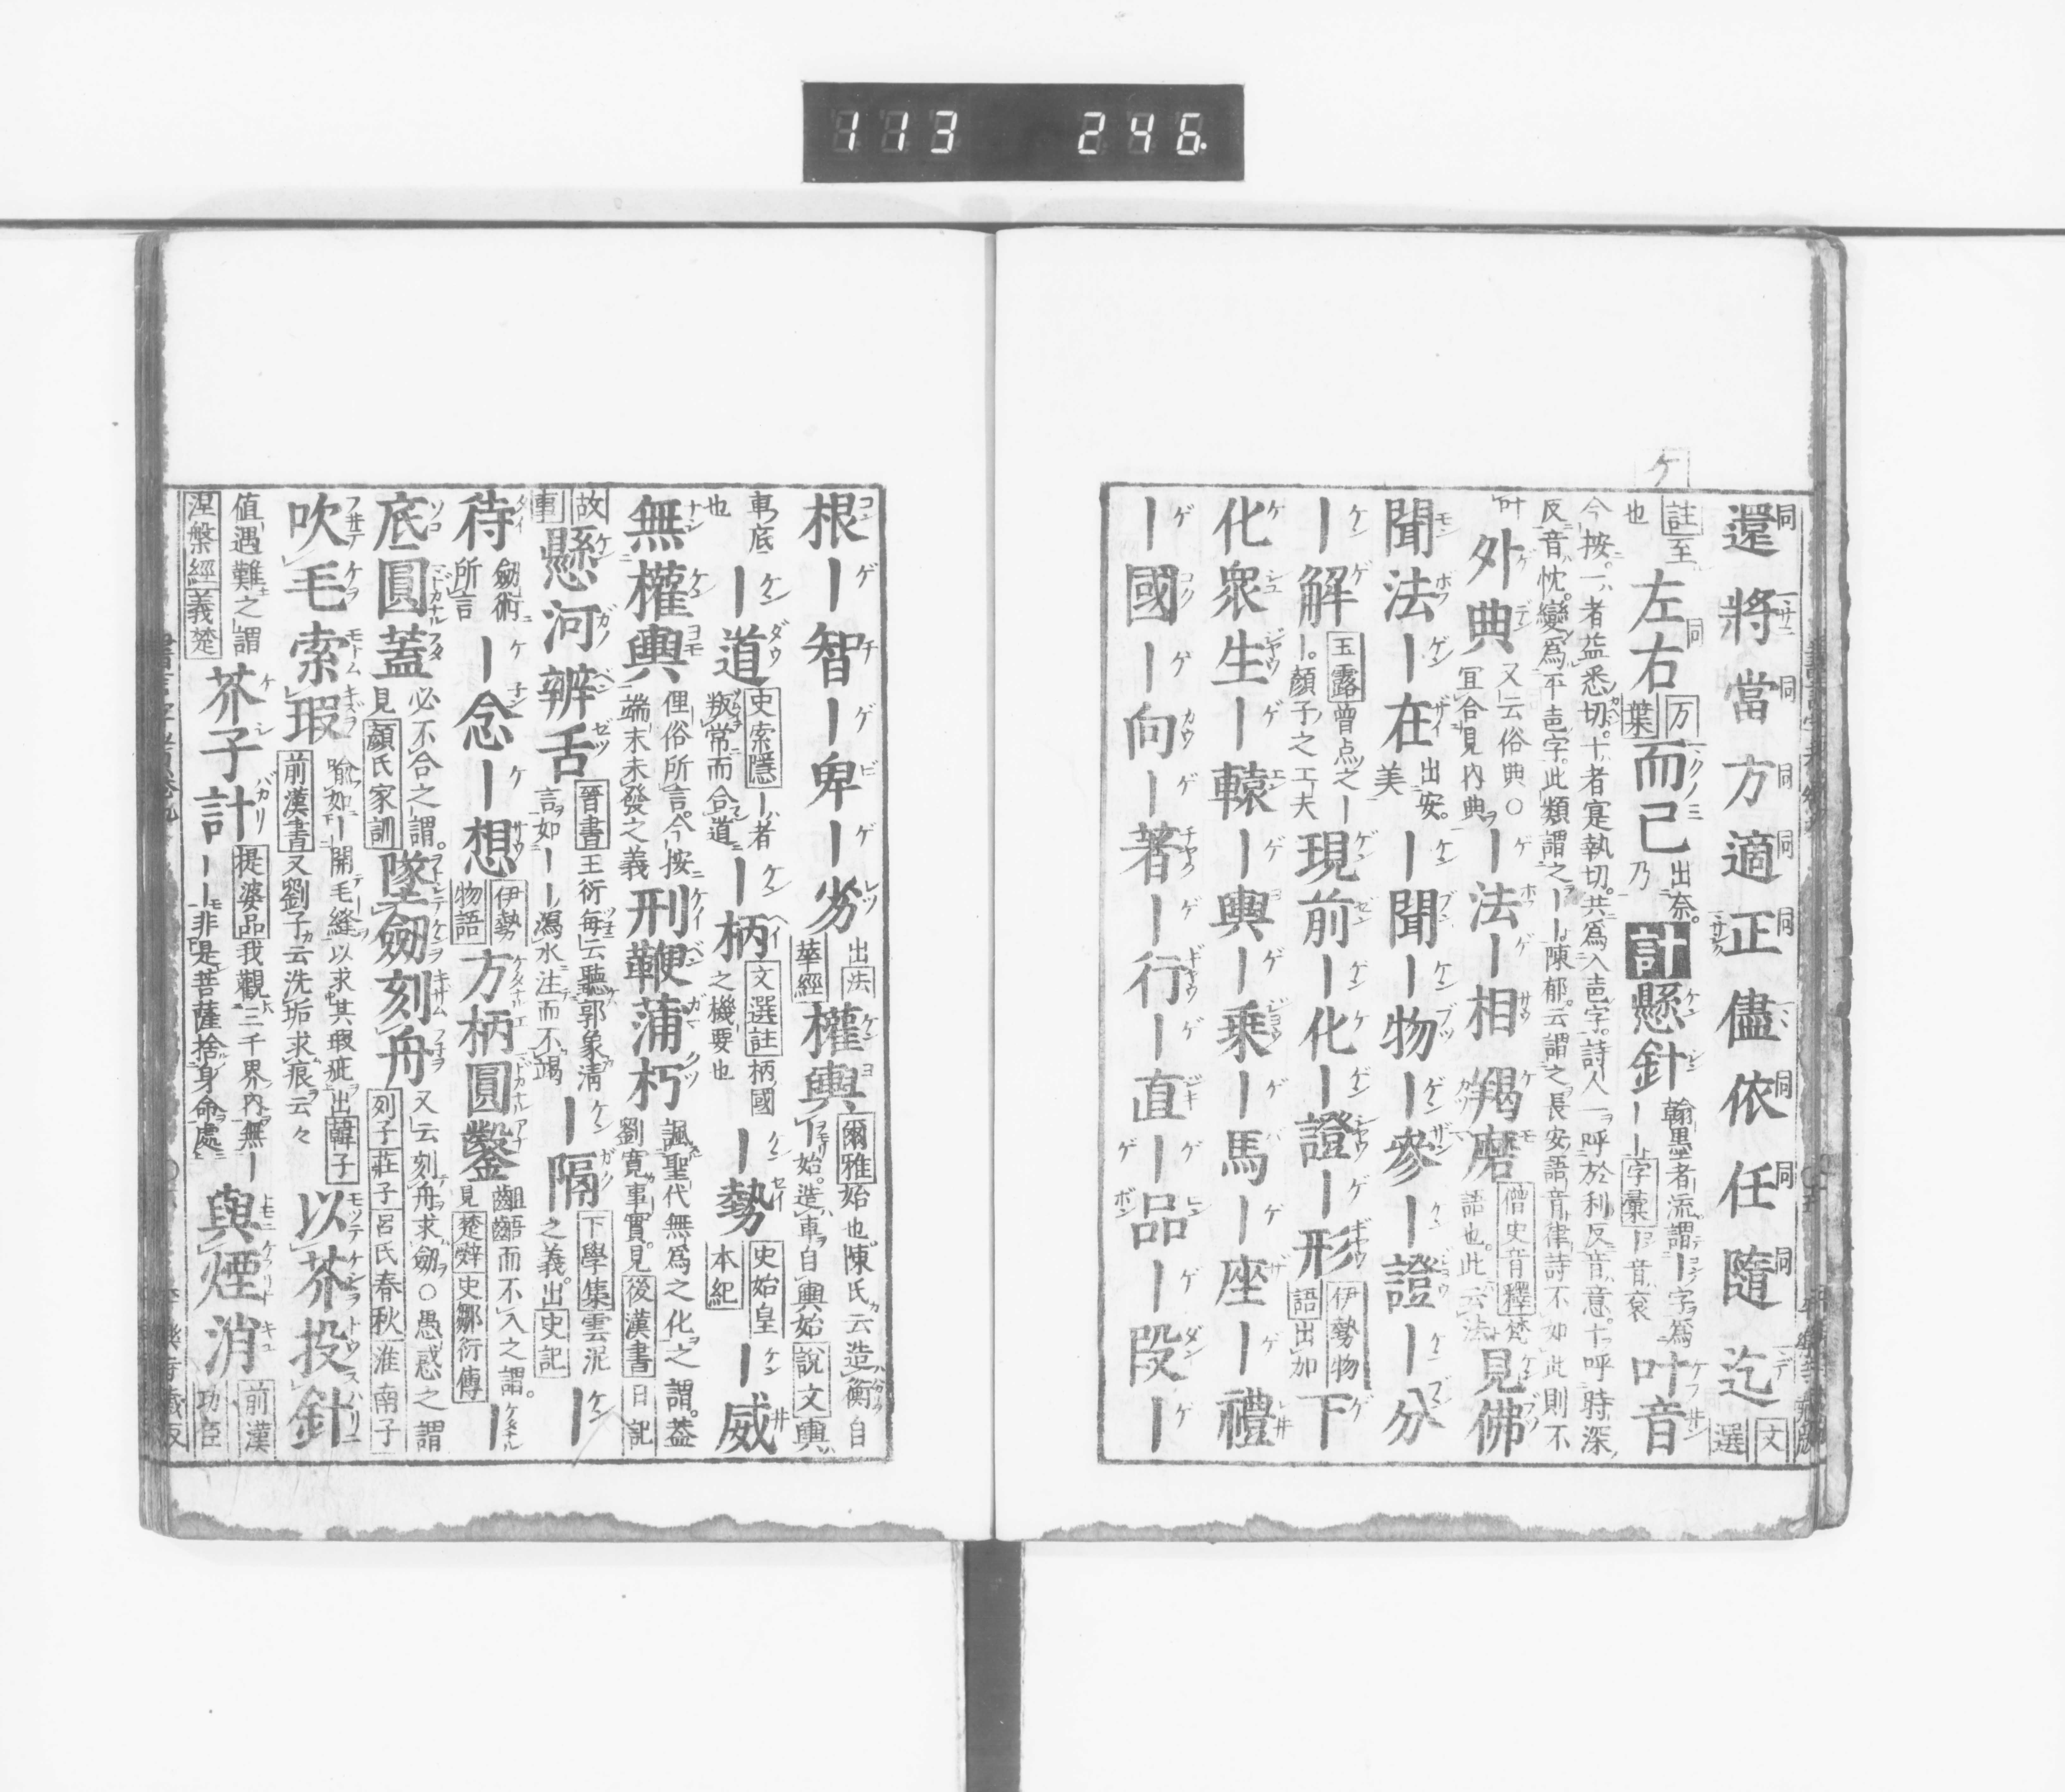 113 246.
ケ
還將當方適正儘依任隨迄文選
註至也左右万葉而已出奈乃計懸針翰墨者流謂ー字為ーー上字彙ー音袞叶音
今按一ハ者益悉切十者寔執切共為入声字詩人一呼於利反音意十呼時深
反音忱變為平声字此類謂之ーー陳郁云謂之長安語音律詩不如此則不
叶外典又云俗典〇宜合見内典ー法ー相羯磨僧史音釋梵語也此云法見佛
聞法ー在出安美ー聞ー物ー參ー證ー分
ー解玉露曾点之ーー顔子之工夫現前ー化ー證ー形伊勢物語出加下
化衆生ー轅ー輿ー乗ー馬ー座ー禮
ー國ー向ー著ー行ー直ー品ー段ー
根ー智ー卑ー劣出法華經權輿爾雅始也陳氏云造衡自ー始造車自輿始說文輿
車底也ー道史索隱ー者叛常而合道ー柄文選註柄國之機要也ー勢史始皇本紀ー威
無權輿俚俗所言今按端末未發之義刑鞭蒲朽諷聖代無為之化之謂蓋劉寛事實見後漢書日記
故事懸河辨舌晉書王衍毎云聽郭象清言如ーー瀉水注而不竭ー隔下學集雲泥之義出史記ー
待劔術所言ー念ー想伊勢物語方柄圓鑿齟齬而不入之謂見楚辭史鄒衍傳ー
底圓蓋必不合之謂見顔氏家訓墜劔刻舟又云刻舟求劔〇愚惑之謂列子莊子呂氏春秋淮南子
吹毛索瑕喩如ー開毛縫以求其瑕疵出韓子前漢書又劉子云洗垢求痕云々以芥投針
値遇難之謂涅槃經義楚芥子計提婆品我觀三千界內無ーーー非是菩薩捨身命處與煙消前漢功臣